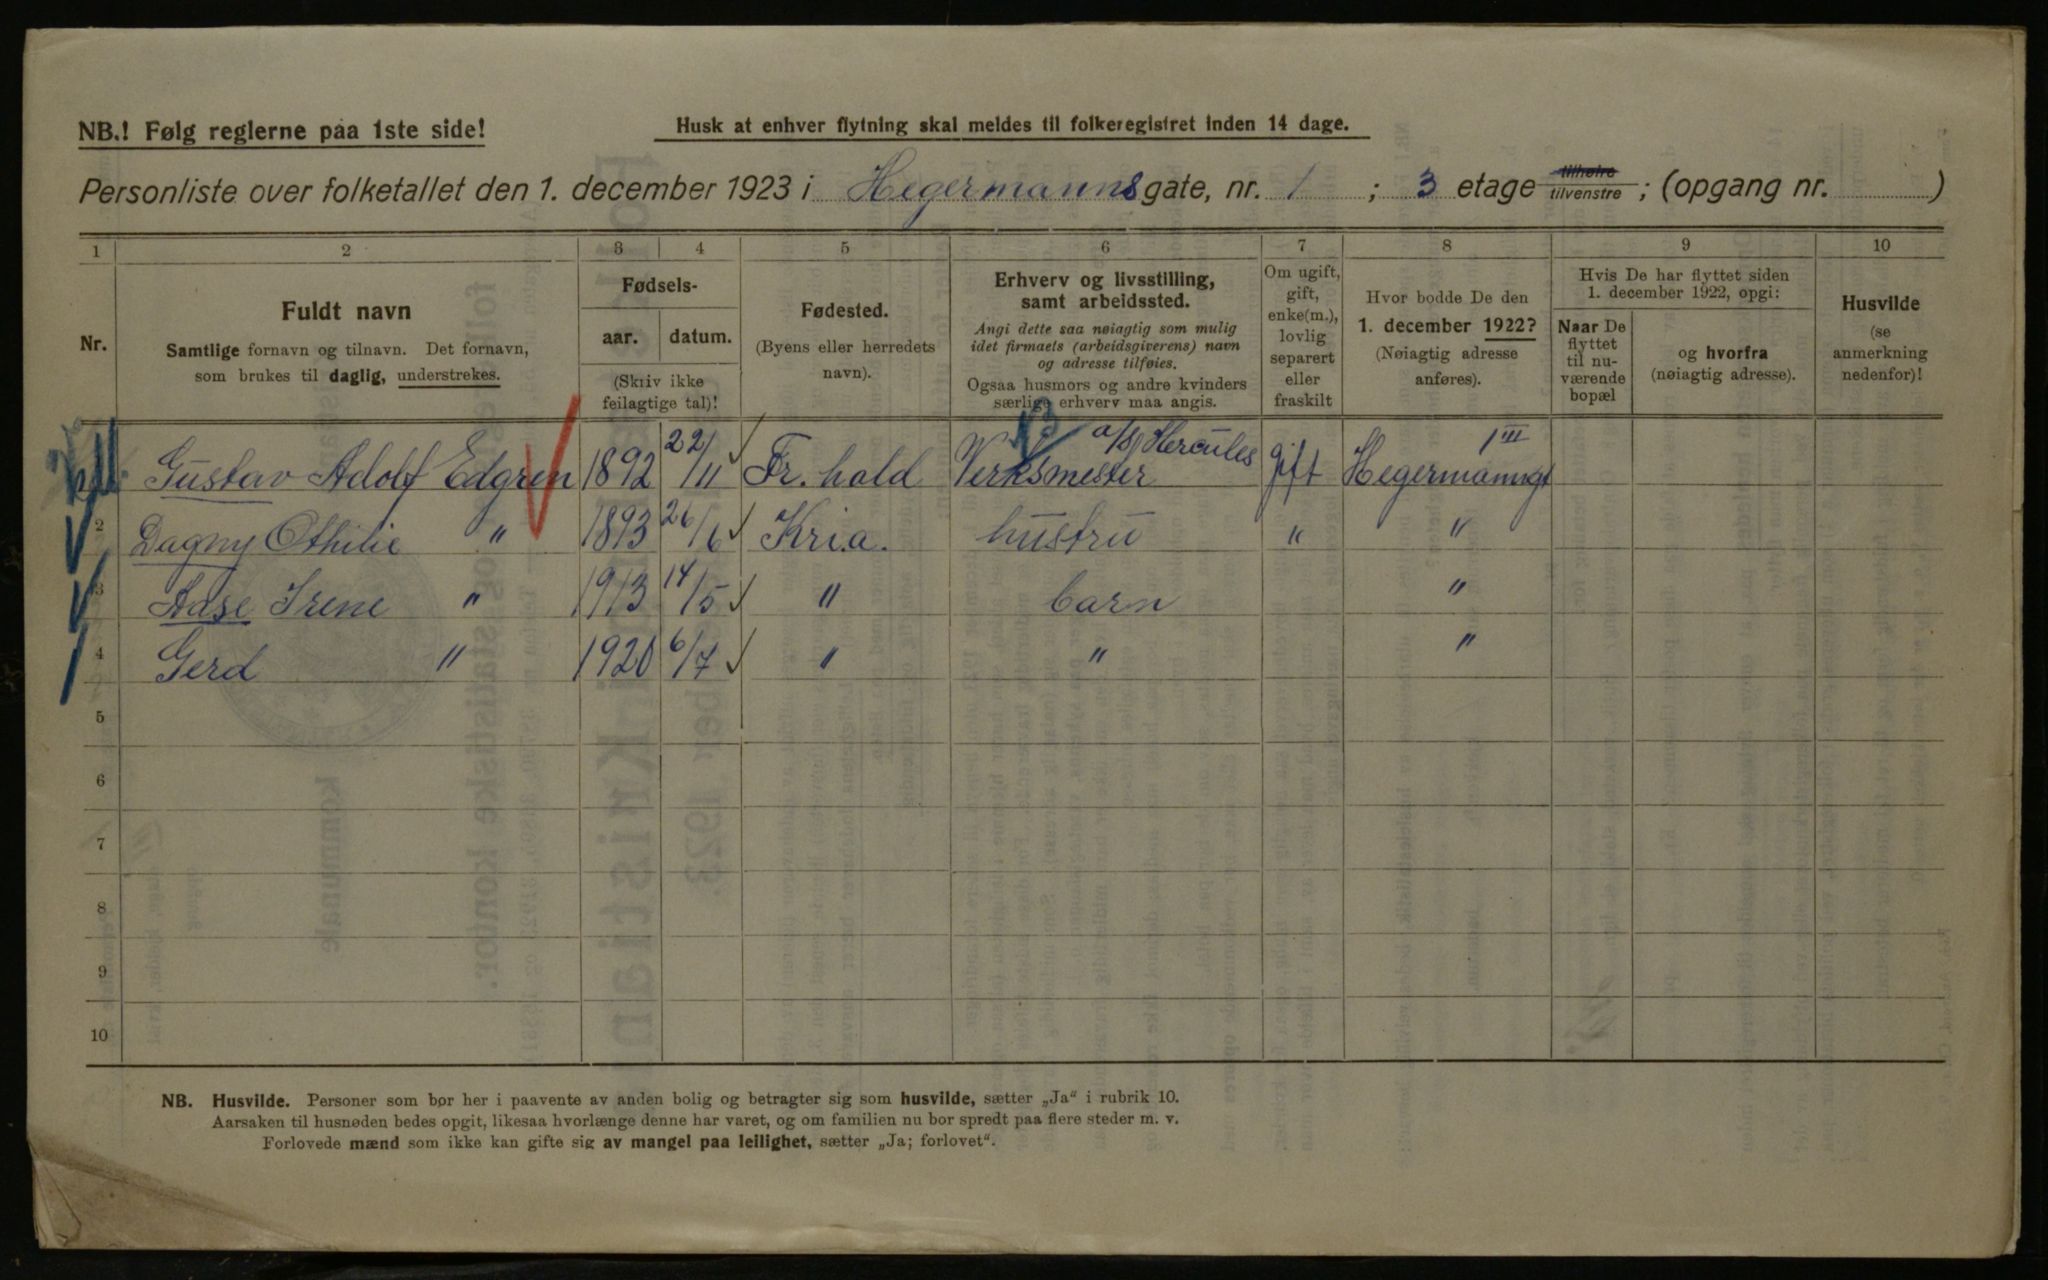 NB.! Følg reglerne paa 1ste side!
Husk at enhver flytning skal meldes til folkeregistret inden 14 dage.
Personliste over folketallet den 1. december 1923 i Hegermannsgate, nr. 1 ; 3 etage tilhøire tilvenstre ; (opgang nr. )
1 2 3 4 5 6 7 8 9 10
Nr.
Fuldt navn
Samtlige fornavn og tilnavn. Det fornavn,
som brukes til daglig, understrekes.
Fødsels-
aar. datum.
(Skriv ikke
feilagtige tal)!
Fødested.
(Byens eller herredets
navn).
Erhverv og livsstilling,
samt arbeidssted.
Angi dette saa nøiagtig som mulig
idet firmaets (arbeidsgiverens) navn
og adresse tilføies.
Ogsaa husmors og andre kvinders
særlige erhverv maa angis.
Om ugift,
gift,
enke(m.),
lovlig
separert
eller
fraskilt
Hvor bodde De den
1. december 1922?
(Nøiagtig adresse
anføres).
Hvis De har flyttet siden
1. december 1922, opgi:
Naar De
flyttet
til nu-
værende
bopæl
og hvorfra
(nøiagtig adresse).
Husvilde
(se
anmerkning
nedenfor)!
Gustav Adolf Edgren 1892 22/11 Fr. hald Verksmester a/s Hercules gift Hegermanngt 1 III
2 Dagny Othilie " 1893 26/6 Kria. hustru " "
3 Aase Irene " 1913 14/5 " barn "
4 Gerd " 1920 6/7 " " "
5
6
7
8
9
10
NB. Husvilde. Personer som bor her i paavente av anden bolig og betragter sig som husvilde, sætter „Ja“ i rubrik 10.
Aarsaken til husnøden bedes opgit, likesaa hvorlænge denne har varet, og om familien nu bor spredt paa flere steder m. v.
Forlovede mænd som ikke kan gifte sig av mangel paa leilighet, sætter „Ja; forlovet“.